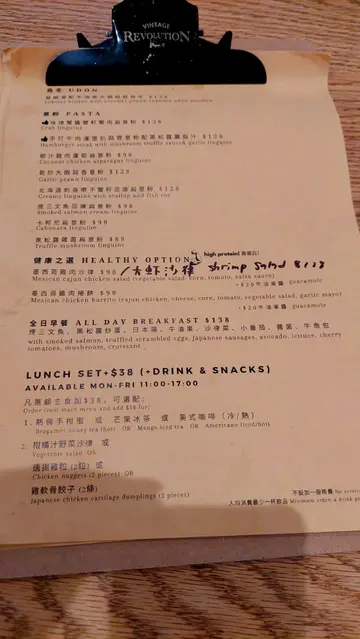 VINTAGE
REVOLUTION
烏冬 UDON
Lobster bisque with
意粉 PASTA
Crab linguine
Hamburger steak with mushroom truffle sauce& garlic linguine
椰汁雞肉露筍扁意粉 $98
Coconut chicken asparagus linguine
$128
Garlic prawn linguine
$128
Creamy linguine with scallop and fish roe
煙三文魚忌廉扁意粉 $98
Smoked salmon cream linguine
卡邦尼扁意粉 $98
Cabonara linguine
黑松露雜菌扁意粉 $88
Truffle mushroom linguine
健康之選 HEALTHY OPTION high protein! 高蛋白!
墨西哥雞肉沙律 $98 / 大蝦沙律 shrimp salad $128
Mexican cajun chicken salad (vegetable salad, corn, tomato, salsa sauce)
+$20牛油果醬 guacamole
墨西哥雞肉捲餅 $98
Mexican chicken burrito (cajun chicken, cheese, corn, tomato, vegetable salad, garlic mayo)
+$20牛油果醬 guacamole
全日早餐 ALL DAY BREAKFAST $138
煙三文魚、黑松露炒蛋、日本腸、牛油果、沙律菜、小番茄、雜菌、牛角包
with smoked salmon, truffled scrambled eggs, Japanese sausages, avocado, lettuce, cherry
tomatoes, mushroom, croissant
LUNCH SET+$38 (+DRINK & SNACKS)
AVAILABLE MON-FRI 11:00-17:00
凡惠顧主食加$38，可適配：
Order from main menu and add $38 for:
1. 熱佛手柑蜜 或 芒果冰茶 或 美式咖啡（冷/熱）
Bragamot honey tea (hot) OR Mango iced tea OR Americano (iced/hot)
2. 柑橘汁野菜沙律 或
Vegetable salad OR
唐揚雞粒 (2粒) 或
Chicken nuggets (2 pieces) OR
雞軟骨餃子 (2錄)
Japanese chicken cartilage dumplings (2 pieces)
不設加一服務費 No service
人均消費最少一杯飲品 Minimum order: a drink per